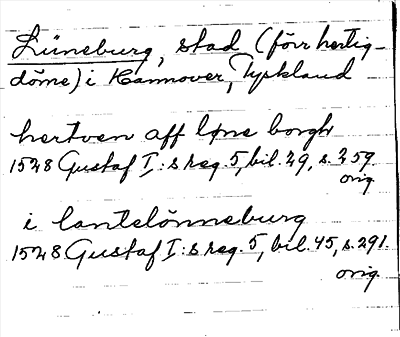 Lüneburg, stad (förr hertig-
döme) i Hannover, Tyskland
hertven aff løne borgh
1528 Gustaf I:s reg. 5, bil. 29, s. 259
orig.
i lantelönneburg
1528 Gustaf I:s reg. 5, bil. 45, s. 291.
orig.